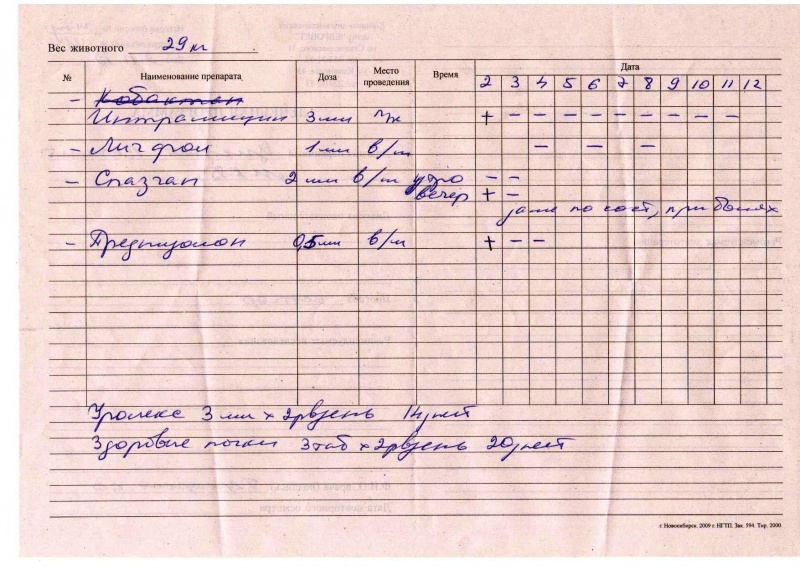 Вес животного 29 кг
№ Наименование препарата Доза Место проведения Время Дата
2 3 4 5 6 7 8 9 10 11 12
- Кобактан
Интрамицин 3 мл п/к + - - - - - - - - -
- Лигфол 1 мл в/м - - -
- Спазган 2 мл в/м утро - -
вечер + -
далее по сост, при болях
- Преднизолон 0,5 мл в/м + - -
Уролекс 3 мл x 2р в день 14 дней
Здоровые почки 3 таб x 2р в день 20 дней
г. Новосибирск. 2009 г. НГТП. Зак. 594. Тир. 2000.